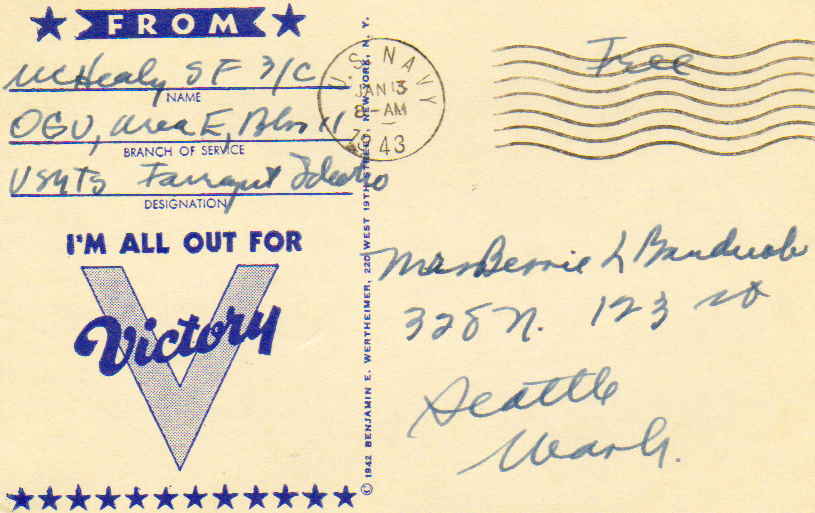 FROM
McHealy SF 3/C
NAME
OGU, Area E, Bks 11
BRANCH OF SERVICE
USNTS Farragut Idaho
DESIGNATION
I'M ALL OUT FOR
Victory
© 1942 BENJAMIN E. WERTHEIMER, 220 WEST 19TH STREET, NEW YORK, N. Y.
U.S. NAVY
JAN 13
8-AM
1943
Free
Mrs Bessie L
328 N. 123 st
Seattle
Wash.